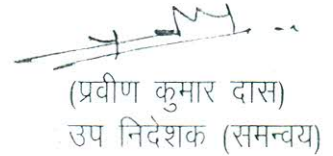 (प्रवीण कुमार दास)
उप निदेशक (समन्वय)